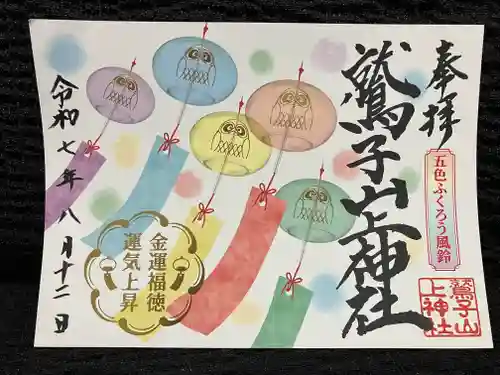 奉拝
五色ふくろう風鈴
鷲子山上神社
鷲子山
上神社
金運福徳
運気上昇
令和七年八月十二日